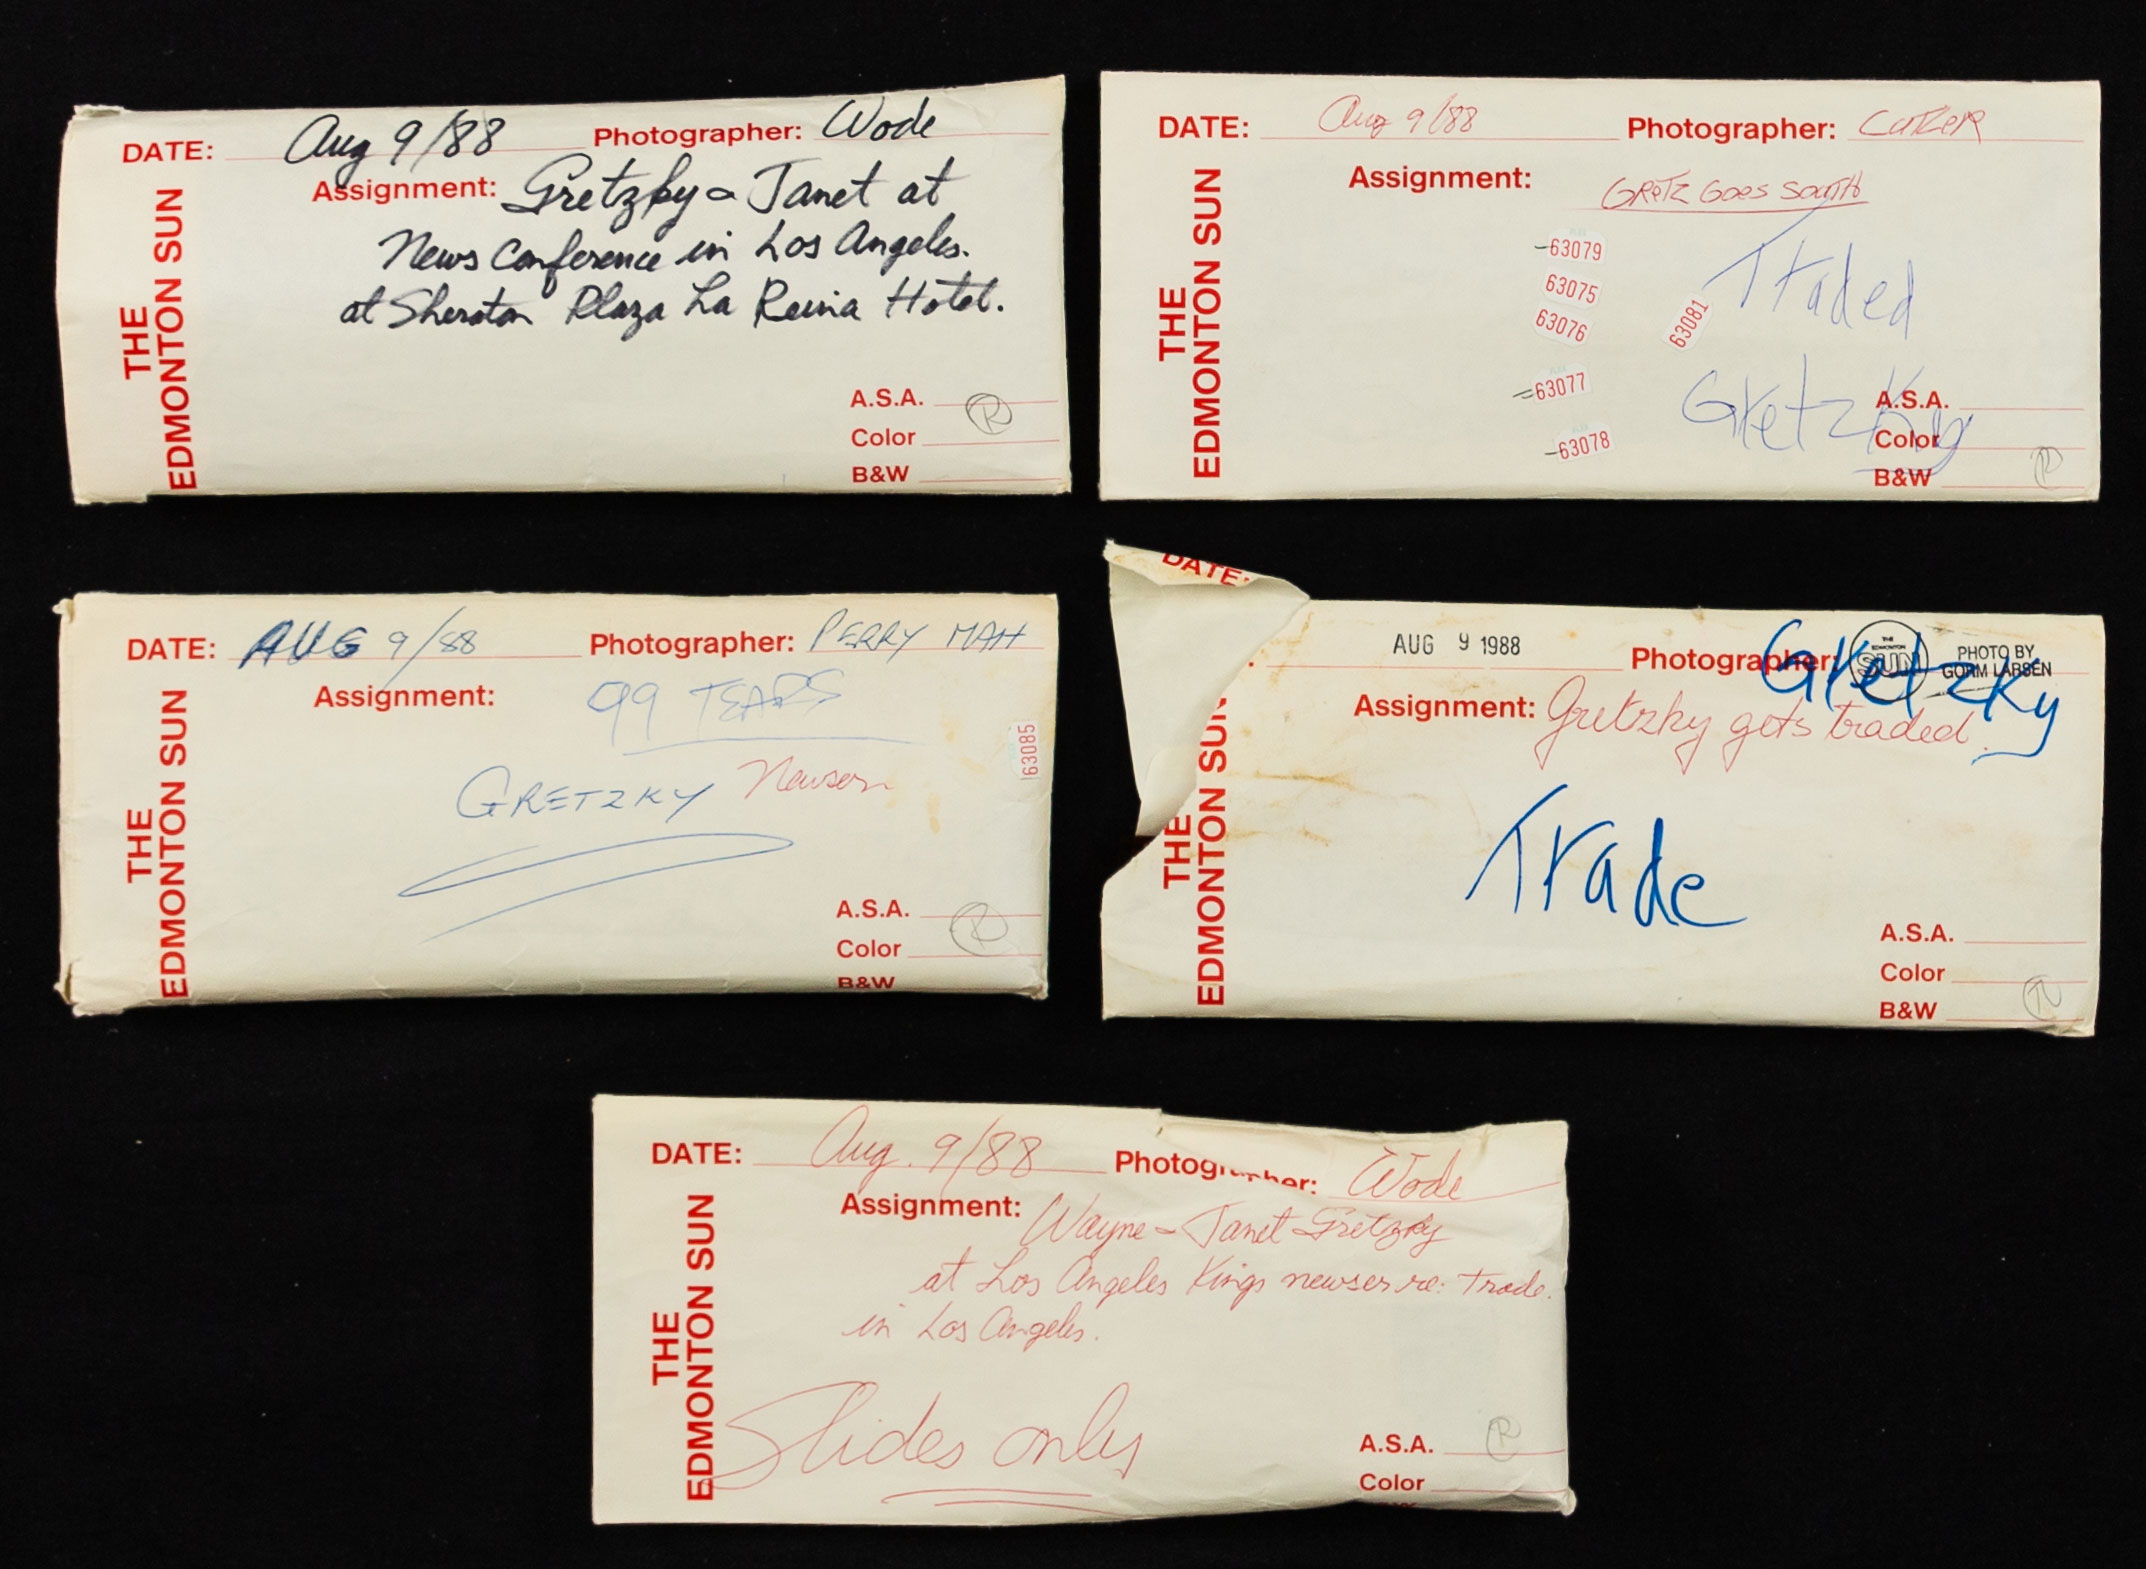 DATE: Aug 9/88 Photographer: Wode
Assignment: Gretzky & Janet at
News Conference in Los Angeles.
at Sheraton Plaza La Reina Hotel.
THE
EDMONTON SUN
A.S.A.
Color
B&W
R
DATE: Aug 9/88 Photographer: CUTLER
Assignment: GRETZ GOES SOUTH
63079
63075
63076
63081
63077
63078
Traded
Gretzky
THE
EDMONTON SUN
A.S.A.
Color
B&W
R
DATE: AUG 9/88 Photographer: PERRY MAH
Assignment: 99 TEARS
63085
GRETZKY Newser
THE
EDMONTON SUN
A.S.A.
Color
B&W
R
DATE:
AUG 9 1988 Photographer: THE EDMONTON SUN PHOTO BY
GORM LARSEN
Gretzky
Assignment: Gretzky gets traded.
Trade
THE
EDMONTON SUN
A.S.A.
Color
B&W
R
DATE: Aug. 9/88 Photographer: Wode
Assignment: Wayne & Janet Gretzky
at Los Angeles Kings newser re: Trade.
in Los Angeles.
Slides only
THE
EDMONTON SUN
A.S.A.
Color
R